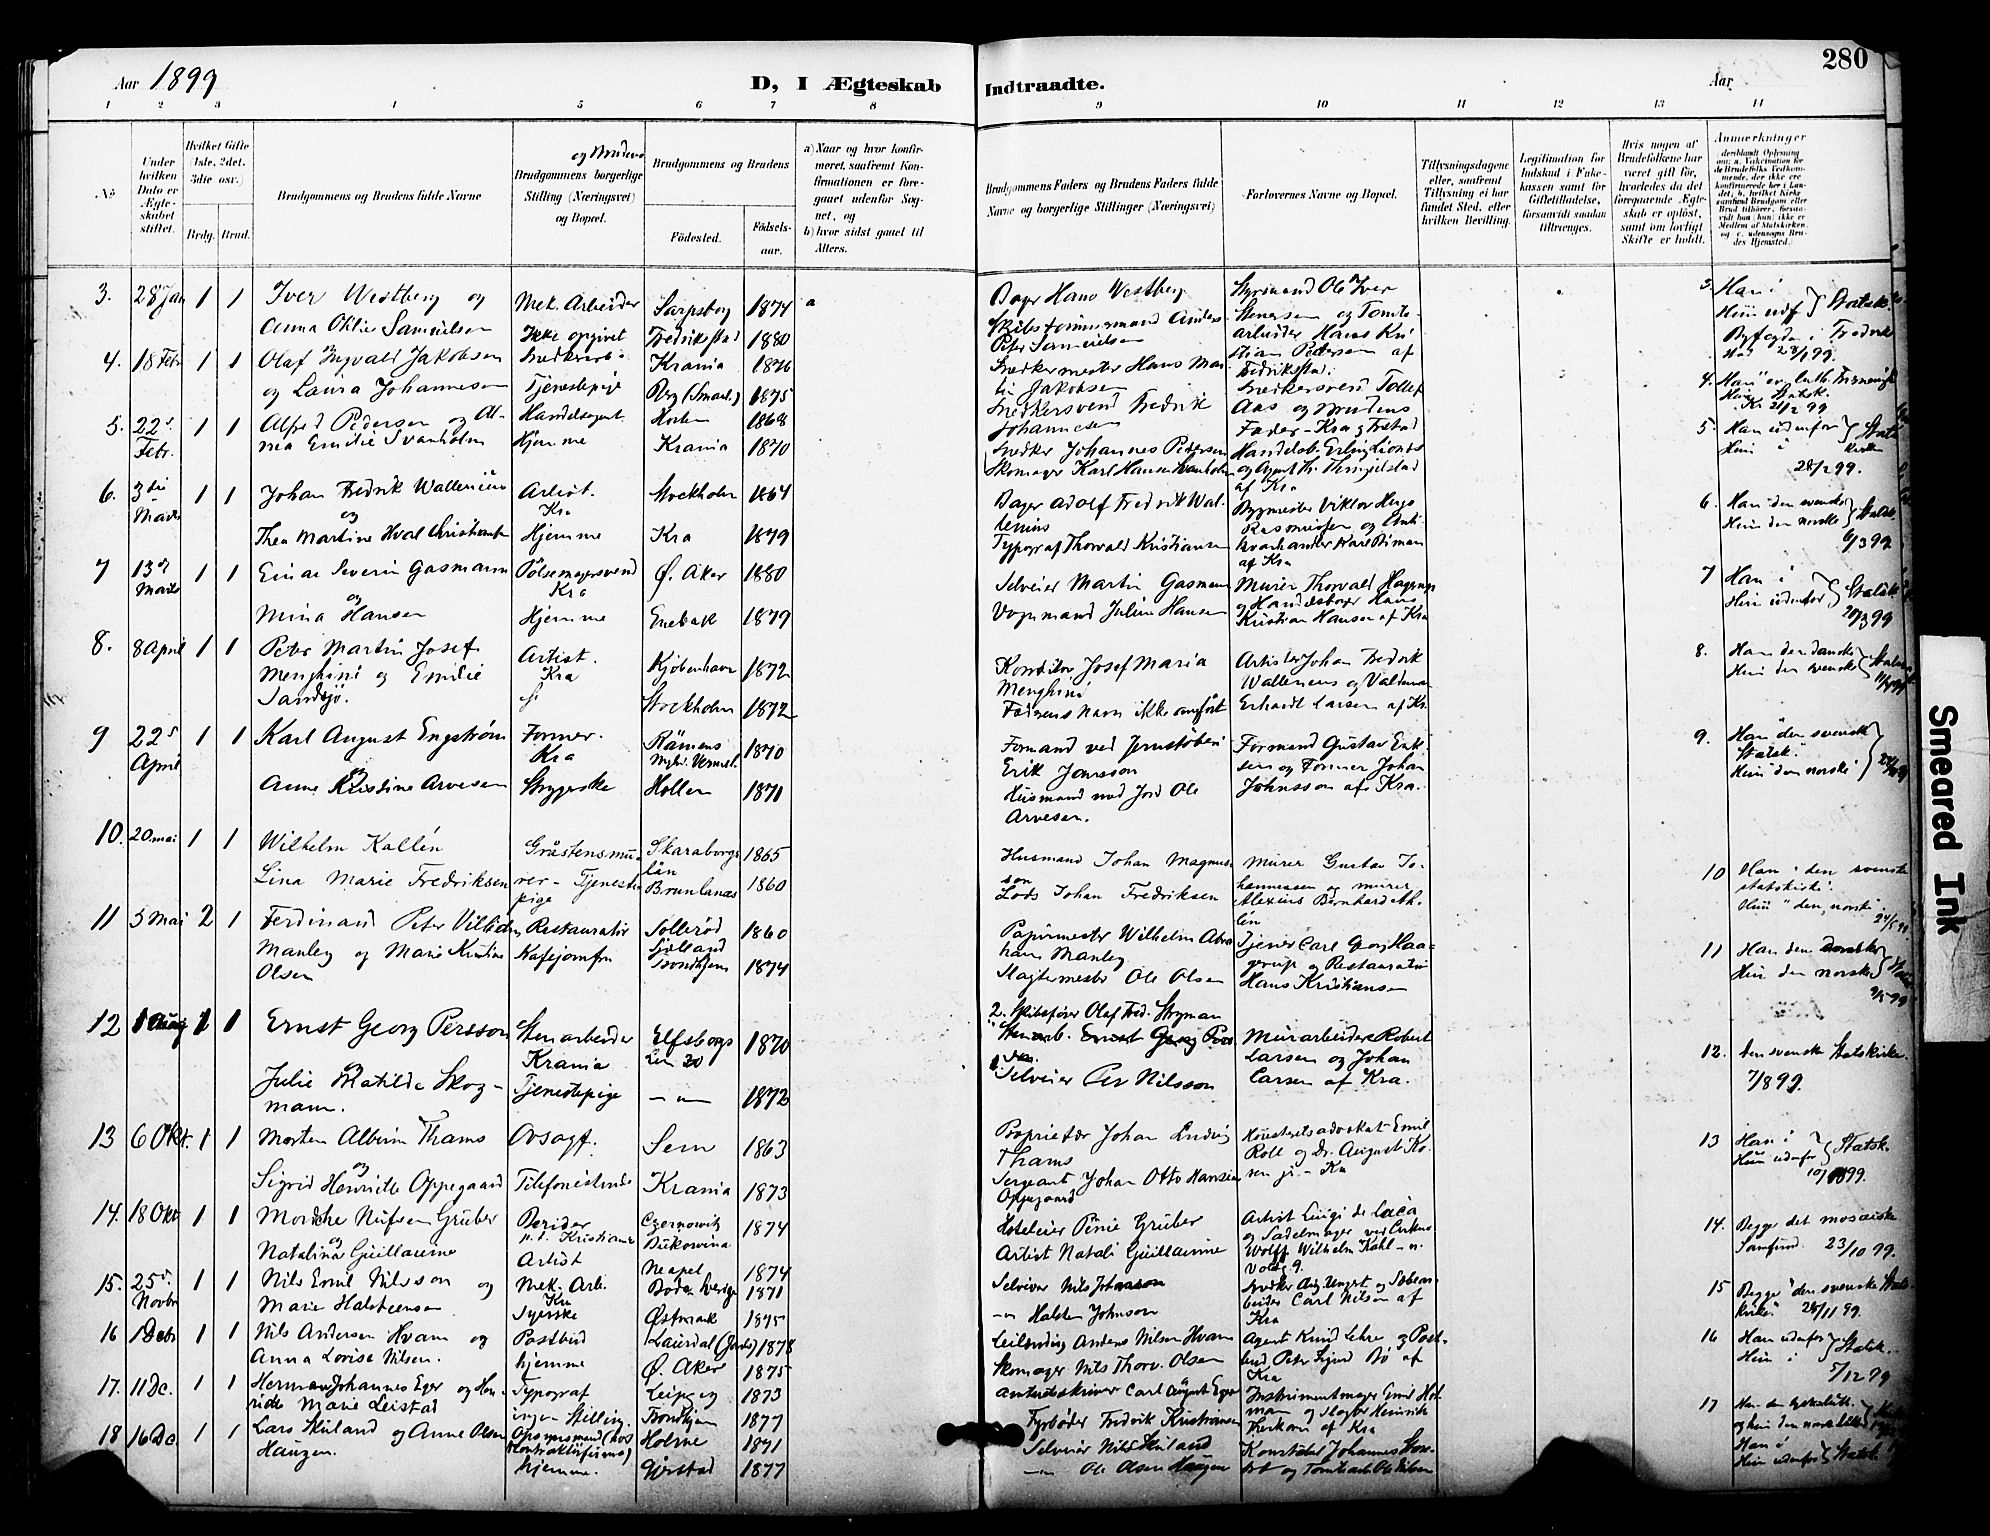 280
Aar 1899
D, I Ægteskab Indtraadte.
Aar
1 2 3 4 5 6 7 8 9 10 11 12 13 14
No
Under hvilken Dato er Ægteskabet stiftet.
Hvilket Gifte (1ste, 2det, 3die osv.)
Brdg. Brud.
Brudgommens og Brudens fulde Navne
og Brudens
Brudgommens borgerlige Stilling (Næringsvei) og Bopæl.
Brudgommens og Brudens
Fødested.
Fødselsaar.
a) Naar og hvor konfirmeret, saafremt Konfirmationen er foregaaet udenfor Sognet, og
b) hvor sidst gaaet til Alters.
Brudgommens Faders og Brudens Faders fulde Navne og borgerlige Stillinger (Næringsvei)
Forlovernes Navne og Bopæl.
Tillysningsdagene eller, saafremt Tillysning ei har fundet Sted, efter hvilken Bevilling.
Legitimation for Indskud i Enkekassen samt for Giftetilladelse, forsaavidt saadan tiltrænges.
Hvis nogen af Brudefolkene har været gift før, hvorledes da det foregaaende Ægteskab er opløst, samt om lovligt Skifte er holdt.
Anmerkninger
3. 28 Jan 1 1 Iver Westberg og Mek. Arbeider Sarpsborg 1874 a
Anna Oktie Samuelsen Ikke opgivet Fredriksstad 1880
Bager Hans Westberg
Skibstømmermand Anders Peter Samuelsen
Styrmand Ole Iver Stenersen og Tomtearbeider Hans Kristian Pedersen af Fredriksstad.
3. Han i Hun udf. } Statsk.
Byfogden i Fredrikstad 23/1 99.
4. 18 Febr 1 1 Olaf Ingvald Jakobsen Snedkerarb. Krania 1876
og Laura Johannesen Tjenestepige Berg (Smaal.) 1875
Snedkermester Hans Martin Jakobsen
Snedkersvend Fredrik Johannesen
Snedkersvend Tollef Aas og Brudens Fader - Kra og Frstad
5. 22de Febr. 1 1 Alfred Pedersen og Al- Handelsagent Horten 1868
ma Emilie Svanholm Hjemme Krania 1870
Snedker Johannes Pedersen
Skomager Karl Hansen Svanholm
5 Han udenfor Hun i } Statskirken
28/2 99.
6. 3die Marts 1 1 Johan Fredrik Wallenius Artist. Kra Stockholm 1864
og
Thea Martine Hval Christiansen Hjemme Kra 1879
Bager Adolf Fredrik Wallenius
Typograf Thorvald Kristiansen
Bygmester Viktor Hugo Rasmussen og Antikvarhandler Karl Biman af Kra
6 Han den svenske Hun den norske } Statsk.
6/3 99
7 13de Marts 1 1 Einar Severin Gasmann Pølsemagersvend Kra Ø. Aker 1880
og
Mina Hansen Hjemme Enebak 1879
Selveier Martin Gasmann
Vognmand Julius Hansen
Murer Thorvald Hagenes og Handelsborger Hans Kristian Hansen af Kra
7 Han i Hun udenfor } Statsk.
20/3 99
8. 8 April 1 1 Peter Martin Josef Artist. Kra Kjøbenhavn 1872
Menghini og Emilie
Sandsjö. Stockholm 1872
Konditor Josef Maria Menghini
Faderens navn ikke anført
Artister Johan Fredrik Wallenius og Valdemar Erhardt Larsen af Kr.
8. Han den danske Hun den svenske } Statsk.
9 22de April 1 1 Karl August Engström Former. Kra Rämens 1870
og
Anne Kristine Arvesen Strygerske Hollen 1871
Formand ved Jernstøberi Erik Jansson
Husmand med Jord Ole Arvesen.
Formand Gustav Eriksen og Former Johan Johnsson af Kra.
9. Han den svenske Statsk. Hun den norske }
10. 20 mai 1 1 Wilhelm Kallén Gråstensmurer Skaraborgs län 1865
Lina Marie Fredriksen Tjenestepige Brunlanæs 1860
Husmand Johan Magnusson
Lods Johan Fredriksen
Murer Gustav Johannessen og murer Alexius Bernhard Ahlén
10 Han i den svenske statskirke. Hun den norske.
11 5 Mai 2 1 Ferdinand Peter Vilhelm Restauratør Søllerød Sjælland 1860
Manley og Marie Kristine Kafejomfru Trondhjem 1874
Olsen
Papirmester Wilhelm Abraham Manley
Slagtermester Ole Olsen
Tjener Carl Georg Haagerup og Restauratør Hans Kristiansen
11 Han den danske Hun den norske } Statsk.
9/5 99
12 1 Aug 1 1 Ernst Georg Persson Stenarbeider Krania Elfsborgs Len 1870
og
Julie Matilda Skogmann. Tjenestepige — " — 1872
2. Skibsfører Olaf Fred. Skogman
1. Selveier Per Nilsson
Murarbeidere Robert Larsen og Johan Larsen af Kra.
12. Den svenske Statskirke.
7/8 99.
13 6 Okt. 1 1 Morten Albin Thams Ovsagf. Sem 1863
og
Sigrid Henriette Oppegaard Telefonistinde Krania 1873
Proprietær Johan Ludvig Thams
Sergeant Johan Otto Hansen Oppegaard
Høiesteretsadvokat Emil Roll og Dr. August Kosen jr. - Kra
13 Han i Hun udenfor } Statsk.
14. 18 Okt 1 1 Mordche Nufsen Gruber Berider p.t. Kristiania Czernowitz Bukowina 1874
og
Natalina Guillaume Artist Neapel 1874
Hoteleier Pinie Gruber
Artist Natali Guillaume
Artist Luigi de Luca og Sadelmager ved Cirkus Wolff Wilhelm Kahl
14. Begge det mosaiske Samfund. 23/10 99.
15. 25de Novbr 1 1 Nils Emil Nilsson og Mek. Arb. Kra Boden Sverige 1871
Marie Halstensen Syerske Østmark 1875
Selveier Nils Johansson
— " — Halsten Johnson
Snedker Aug. Ungert og Stenarbeider Carl Nilsen af Kra
15 Begge den svenske Statskirke 28/11 99.
16 1 Decbr 1 1 Nils Andersen Hvam og Postbud Laurdal (Jarls) 1878
Anna Lovise Nilsen. hjemme Ø. Aker 1875
Leilending Anders Nilsen Hvam
Skomager Nils Thorv. Olsen
Agent Knud Lehre og Postbud Peter Sjurd Bø af Kra
16 Han udenfor Hun i } Statsk.
5/12 99
17. 11 Dc. 1 1 Herman Johannes Eger og Hen- Typograf Leipzig 1873
ride Marie Leistad ingen Stilling. Trondhjem 1877
Amtsdskriver Carl August Eger
Fyrbøder Fredrik Kristiansen
Instrumentmager Emil Hofman og Slagter Heinrich af Kra
17 Han den tyskeluth. og hun den norskeluth.
18 16 Dc 1 1 Lars Skuland og Anne Olsen Opsynsmand Holme 1871
Haugen. hjemme. Gjerstad 1877
Selveier Nils Skuland
— " — Ole Olsen Haugen
Konstabel Johannes
Han i Hun udenfor } Statsk.
Smeared Ink